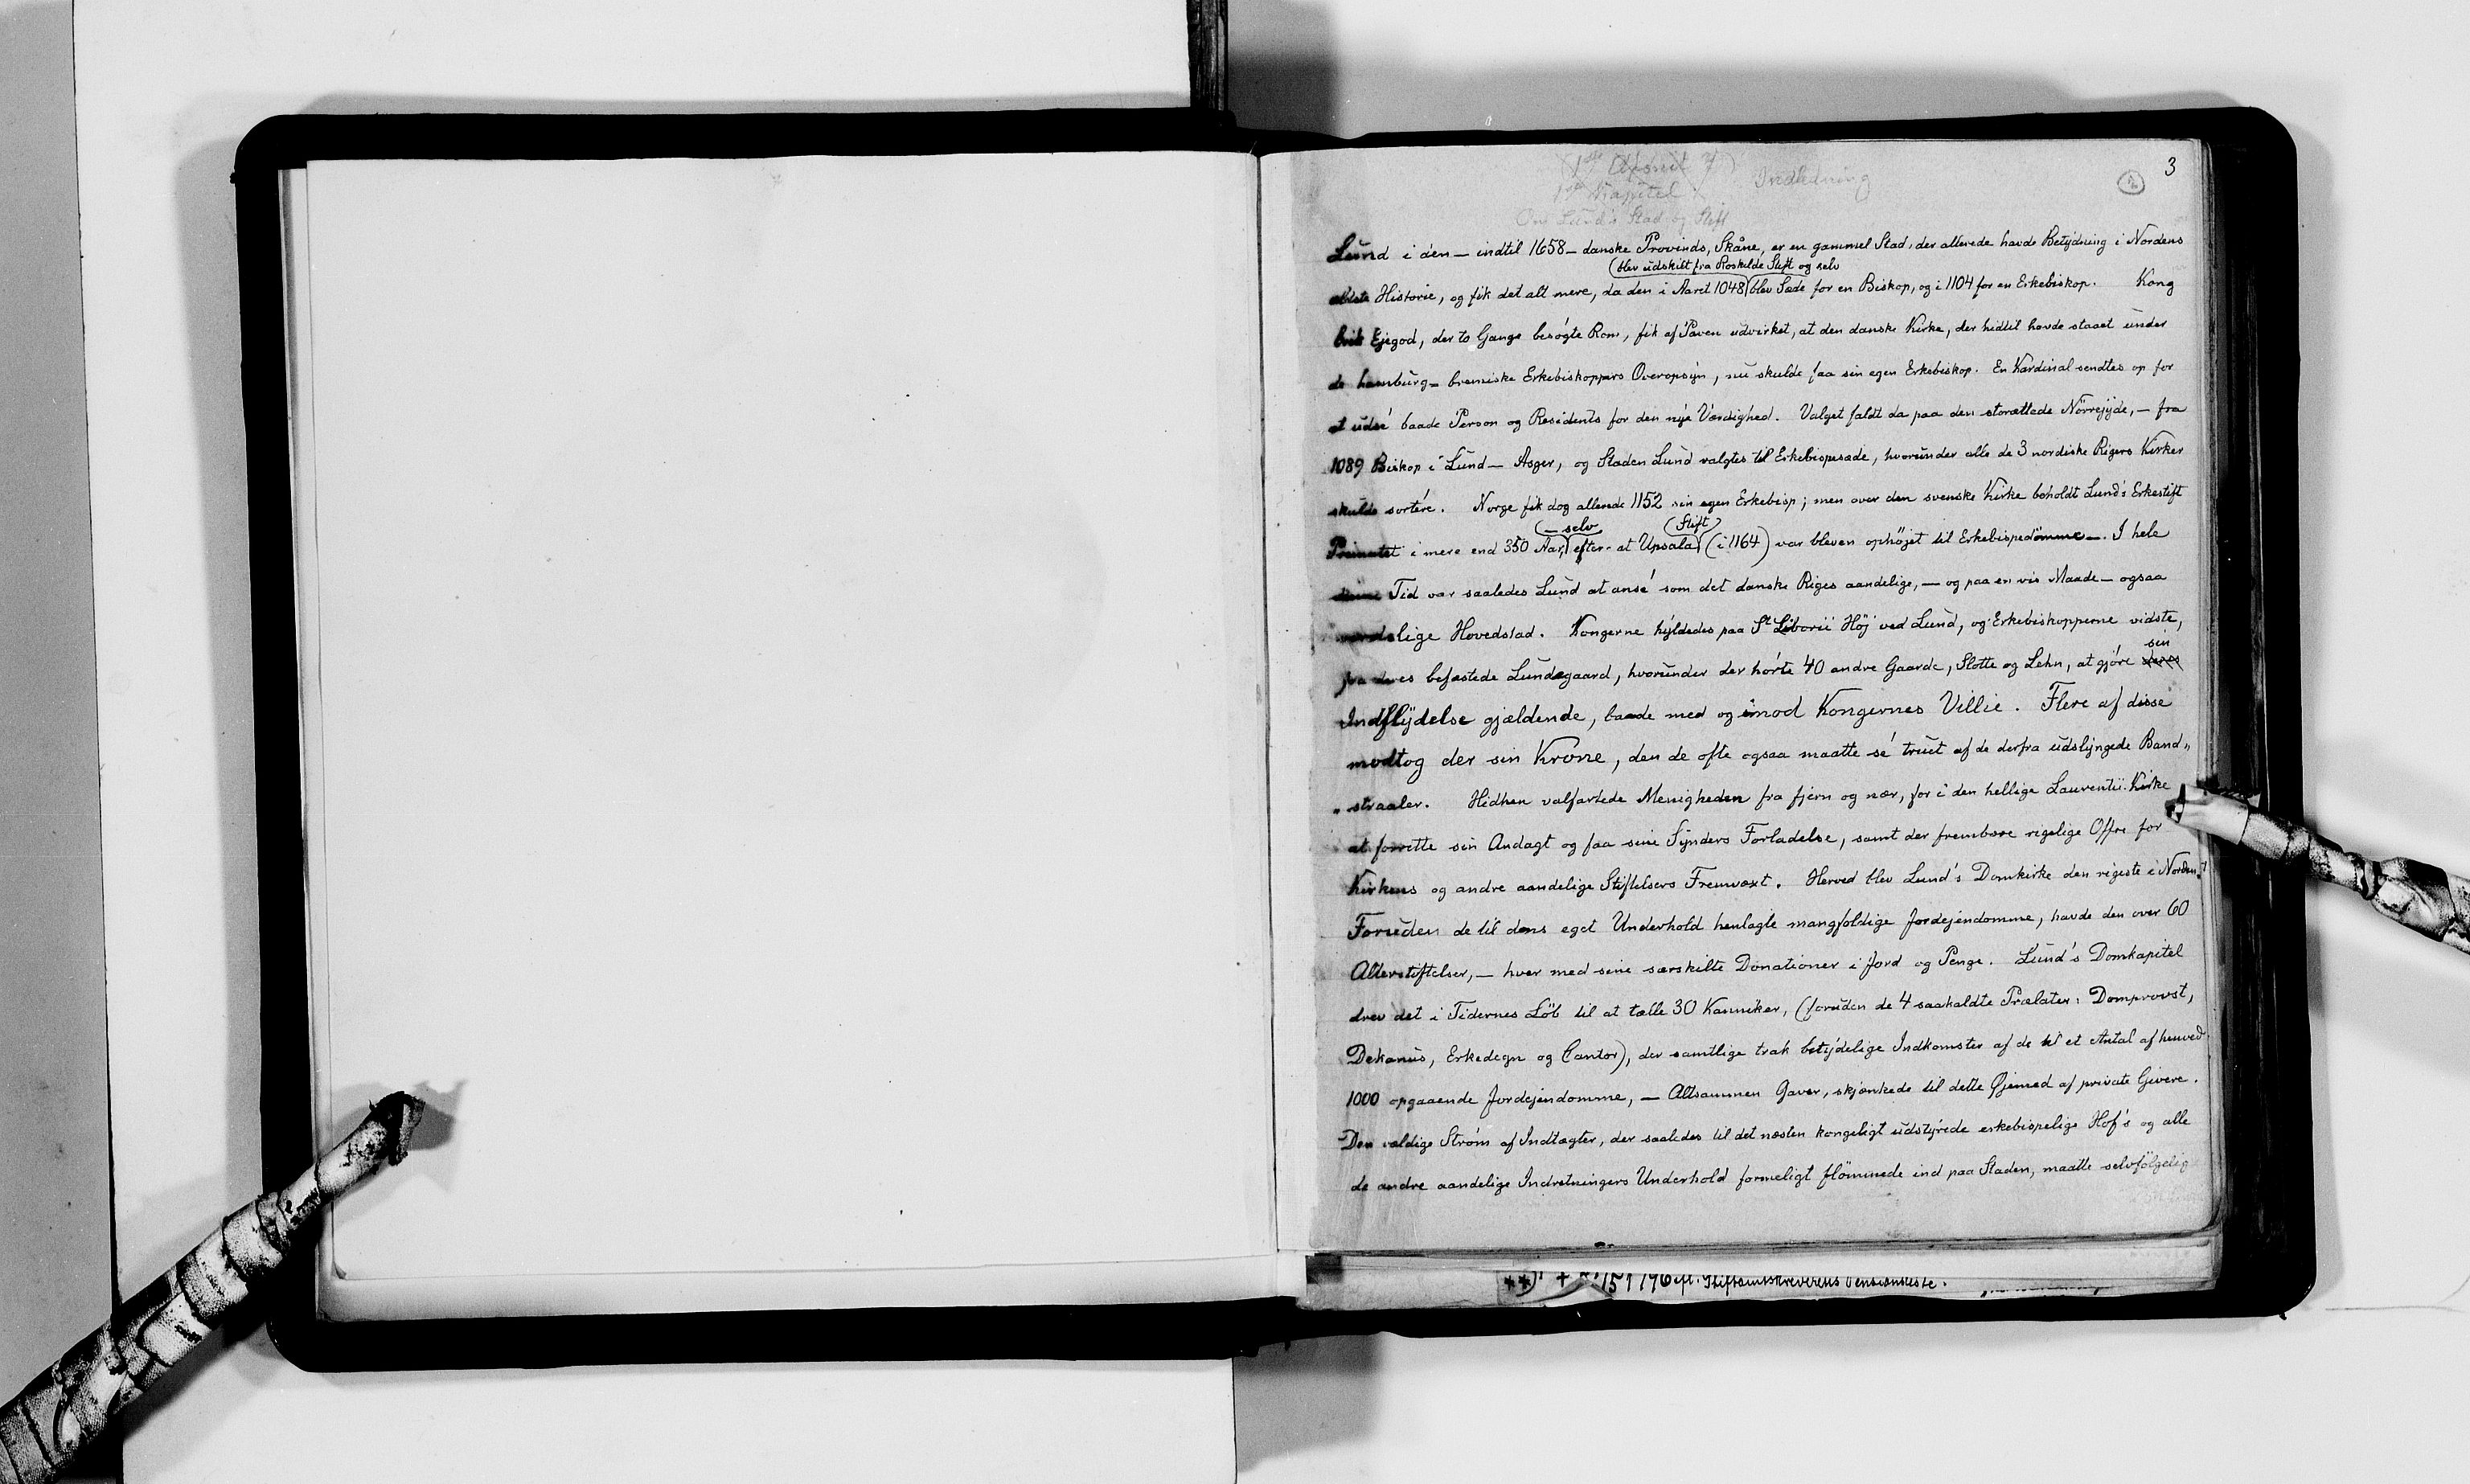 3
1ste Afsnit
1ste Kapitel Indledning
Om Lund's Stad og Stift
Lund i den — indtil 1658 — danske Provinds, Skåne, er en gammel Stad, der allerede havde Betydning i Nordens
(blev udskilt fra Roskilde Stift og selv
ældste Historie, og fik det alt mere, da den i Aaret 1048 blev Sæde for en Biskop, og i 1104 for en Erkebiskop. Kong
Erik Ejegod, der to Gange besøgte Rom, fik af Paven udvirket, at den danske Kirke, der hidtil havde staaet under
de hamburg-bremiske Erkebiskoppers Overopsyn, nu skulde faa sin egen Erkebiskop. En Kardinal sendtes op for
at udsé baade Person og Residents for den nye Værdighed. Valget faldt da paa den storættede Nörrejyde, — fra
1089 Biskop i Lund — Asger, og Staden Lund valgtes til Erkebispesæde, hvorunder alle de 3 nordiske Rigers Kirker
skulde sortére. Norge fik dog allerede 1152 sin egen Erkebisp; men over den svenske Kirke beholdt Lund's Erkestift
(— selv (Stift)
Primatet i mere end 350 Aar, efter at Upsala (i 1164) var bleven ophöjet til Erkebispedömme —. I hele
denne Tid var saaledes Lund at ansé som det danske Riges aandelige, — og paa en vis Maade — ogsaa
verdslige Hovedstad. Kongerne hyldedes paa St Liborii Höj ved Lund, og Erkebiskopperne vidste,
sin
fra deres befæstede Lundegaard, hvorunder der hörte 40 andre Gaarde, Slotte og Lehn, at gjöre deres
Indflydelse gjældende, baade med og imod Kongernes Villie. Flere af disse
modtog der sin Krone, den de ofte ogsaa maatte sé truet af de derfra udslyngede Band„
„straaler. Hidhen valfartede Menigheden fra fjern og nær, for i den hellige Laurentii Kirke
at forrette sin Andagt og faa sine Synders Forladelse, samt der frembære rigelige Offre for
Kirkens og andre aandelige Stiftelsers Fremvæxt. Herved blev Lund's Domkirke den rigeste i Norden.
Foruden de til dens eget Underhold henlagte mangfoldige Jordejendomme, havde den over 60
Alterstiftelser, — hver med sine særskilte Donationer i Jord og Penge. Lund's Domkapitel
drev det i Tidernes Löb til at tælle 30 Kanniker, (foruden de 4 saakaldte Prælater: Domprovst,
Dekanus, Erkedegn og Cantor), der samtlige trak betydelige Indkomster af de til et Antal af henved
1000 opgaaende Jordejendomme, — Altsammen Gaver, skjænkede til dette Øjemed af private Givere.
Den vældige Ström af Indtægter, der saaledes til det næsten kongeligt udstyrede erkebispelige Hof's og alle
de andre aandelige Indretningers Underhold formeligt flömmede ind paa Staden, maatte selvfölgelig
1796 ifl. Stiftamtskriverens Pensionsliste.